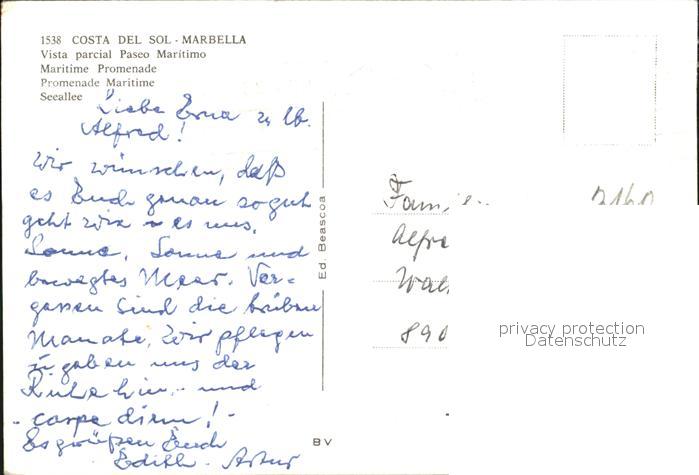 1538 COSTA DEL SOL - MARBELLA
Vista parcial Paseo Marítimo
Maritime Promenade
Promenade Maritime
Seeallee
Liebe Erna u. lb.
Alfred!
Wir wünschen, daß
es Euch genau so gut
geht wie es uns.
Sonne, Sonne und
bewegtes Meer. Ver-
gessen sind die trüben
Monate. Wir pflegen
geben uns der
Ruhe hin. - und
- carpe diem! -
Es grüßen Euch
Edith - Artur
Ed. Beascoa
BV
Fami
Alfre
890
privacy protection
Datenschutz